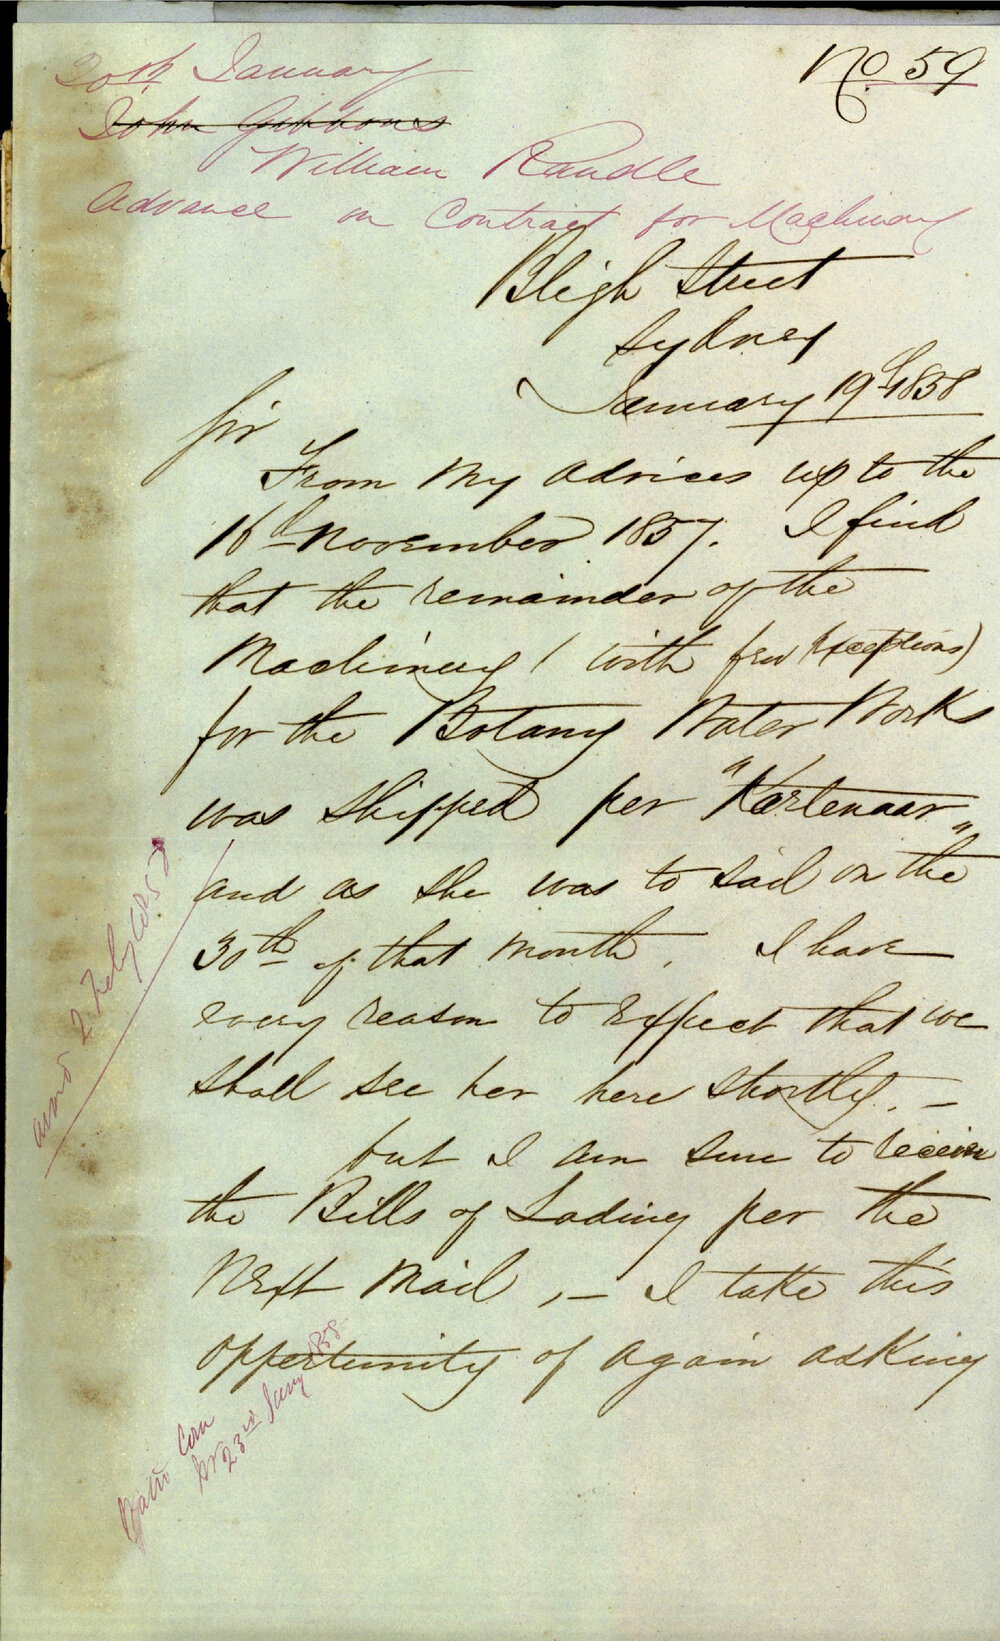 No. 59
20th January
John Gibbons
William Randle
Advance on Contract for Machinery
Bligh Street
Sydney
January 19th 1858
Sir
From my advices up to the
16th November 1857. I find
that the remainder of the
Machinery (with few exceptions)
for the Botany Water Works
was shipped per "Kortenaar"
and as she was to sail on the
30th of that month, I have
every reason to expect that we
shall see her here shortly. —
but I am sure to receive
the Bills of Lading per the
Next Mail, — I take this
opportunity of again asking
2 Feby 1858
Com
23rd Jany 1858